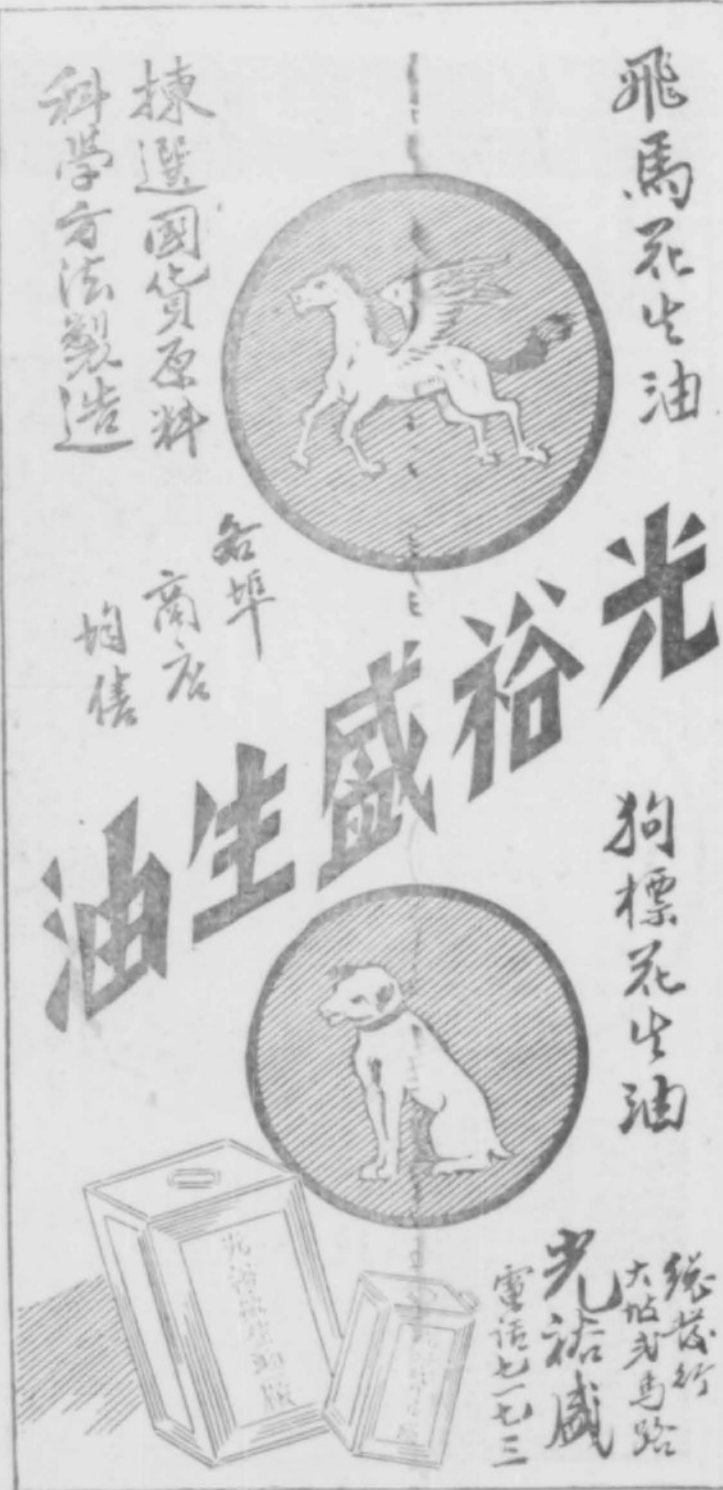 飛馬花生油
揀選國貨原料
科學方法製造
各埠
商店
均售
光裕盛生油
狗標花生油
總發行
大坡弍馬路
光裕盛
電話七一七三